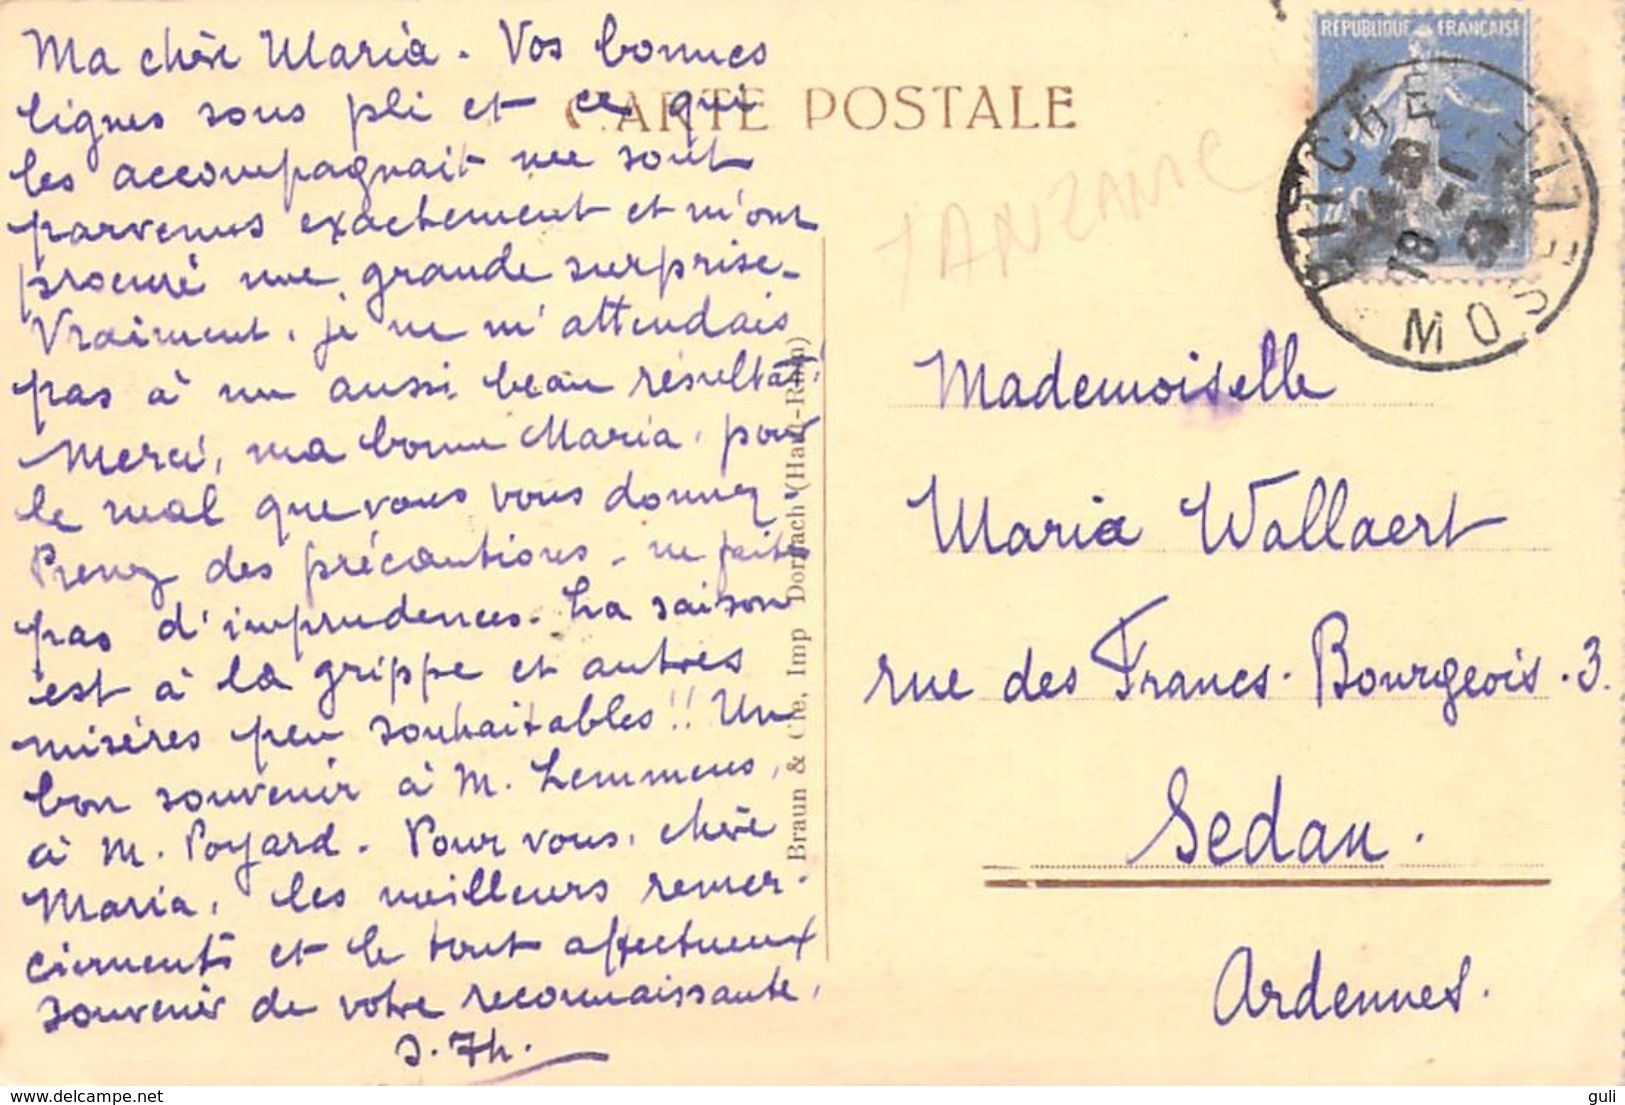 Ma chère Maria. Vos bonnes
lignes sous pli et ce qui
les accompagnait me sont
parvenus exactement et m'ont
procuré une grande surprise.
Vraiment, je ne m'attendais
pas à un aussi beau résultat!
Merci, ma bonne Maria, pour
le mal que vous vous donnez.
Prenez des précautions, ne faites
pas d'imprudences. La saison
est à la grippe et autres
misères peu souhaitables!! Un
bon souvenir à M. Lemmens,
à M. Poyard. Pour vous, chère
Maria, les meilleurs remer-
ciements et le tout affectueux
souvenir de votre reconnaissante,
J. Th.
CARTE POSTALE
TANZANIE
Braun & Cie, Imp Dornach (Haut-Rhin)
REPUBLIQUE FRANÇAISE
BITCHE
MOSELLE
Mademoiselle
Maria Wallaert
rue des Francs-Bourgeois.3.
Sedan.
Ardennes.
delcampe.net
guli